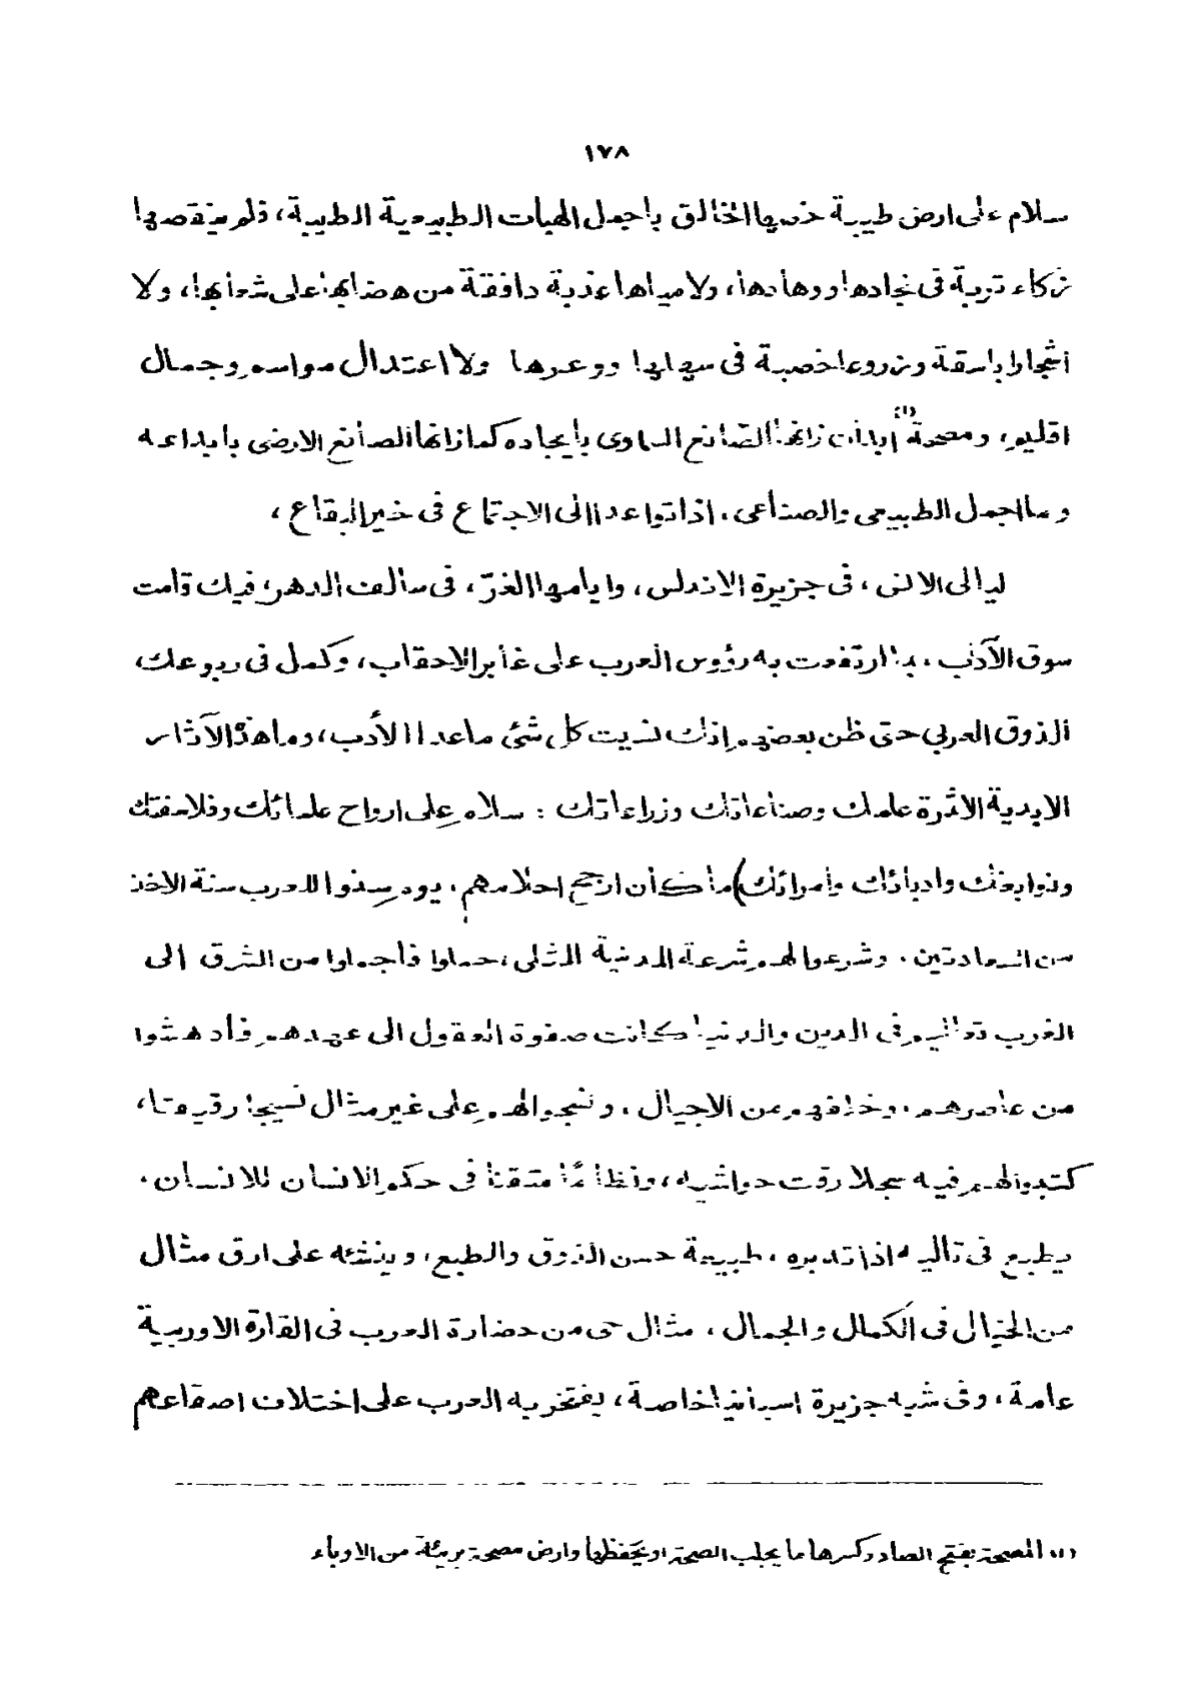 ١٧٨
سلام على ارض طيبة خصها الخالق باجمل الهبات الطبيعية الطيبة، فلم ينقصها
زكاء تربة في نجادها ووهادها، ولا مياها عذبة دافقة من هضابها على شعابها، ولا
اشجارا باسقة وزروعا خصبة في سهلها ووعرها ولا اعتدال مواسم وجمال
اقليم، ومصحة (١) ابدان زانها الصانع السماوى بايجاده كما زانها الصانع الارضى بابداعه
وما اجمل الطبيعى والصناعى، اذا تواعدا الى الاجتماع في خير البقاع،
ليالى الانس، في جزيرة الاندلس، وايامها الغرّ، في سالف الدهر، فيك قامت
سوق الآداب، بما ارتفعت به رؤوس العرب على غابر الاحقاب، وكمل في ربوعك،
الذوق العربي حتى ظن بعضهم إنك نسيت كل شئ ما عدا الأدب، وما هذا الآثار
الابدية الاثرة علمك وصناعاتك وزراعاتك: سلام على ارواح علمائك وفلاسفتك
ونوابغك وادبائك وامرائك) ما كان ارجح احلامهم، يوم سنوا للعرب سنة الاخذ
من السعادتين، وشرعوا لهم شرعة المدنية المثلى، حملوا فأجملوا من الشرق الى
الغرب تعاليم في الدين والدنيا كانت صفوة العقول الى عهدهم فأدهشوا
من عاصرهم، وخلفهم من الاجيال، ونسجوا لهم على غير مثال نسيجا رقيقا،
كتبوا لهم فيه سجلا رقت حواشيه، ونظاما متقنا في حكم الانسان للانسان.
يطبع في تاليه اذا تدبره، طبيعة حسن الذوق والطبع، وينشئه على ارق مثال
من الخيال في الكمال والجمال، مثال حى من حضارة العرب في القارة الاوربية
عامة، وفى شبه جزيرة اسبانيا خاصة، يفتخر به العرب على اختلاف اصقاعهم
(١) المصحة بفتح الصاد وكسرها ما يجلب الصحة او يحفظها وارض مصحة بريئة من الاوباء